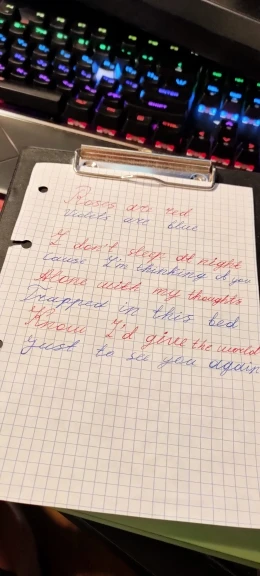 Roses are red
violets are blue
I don't sleep at night
Cause I'm thinking of you
Alone with my thoughts
Trapped in this bed
Know I'd give the world
Just to see you again